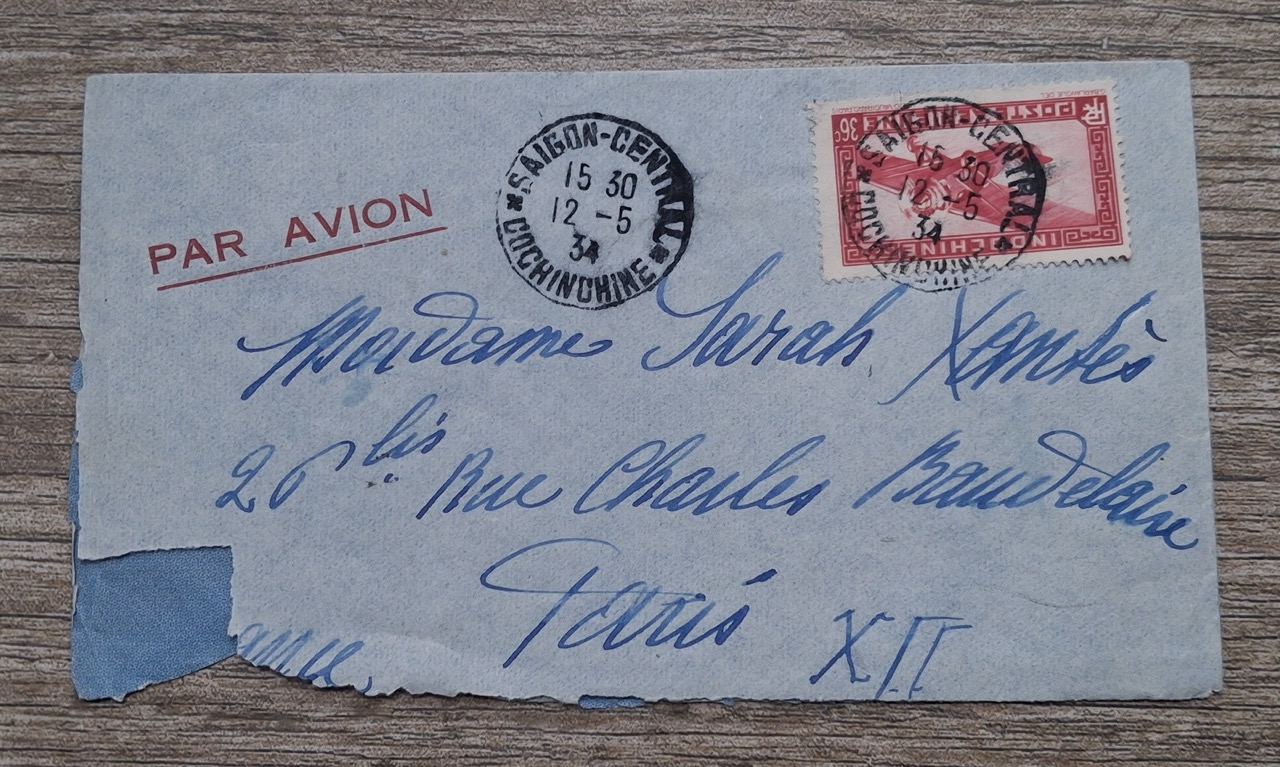 PAR AVION
SAIGON-CENTRAL
15 30
12 -5
34
COCHINCHINE
36c
POSTE AERIENNE
RF
INDOCHINE
SAIGON-CENTRAL
15 30
12 -5
34
COCHINCHINE
Madame Sarah Xantès
26 bis Rue Charles Baudelaire
Paris XII
ance